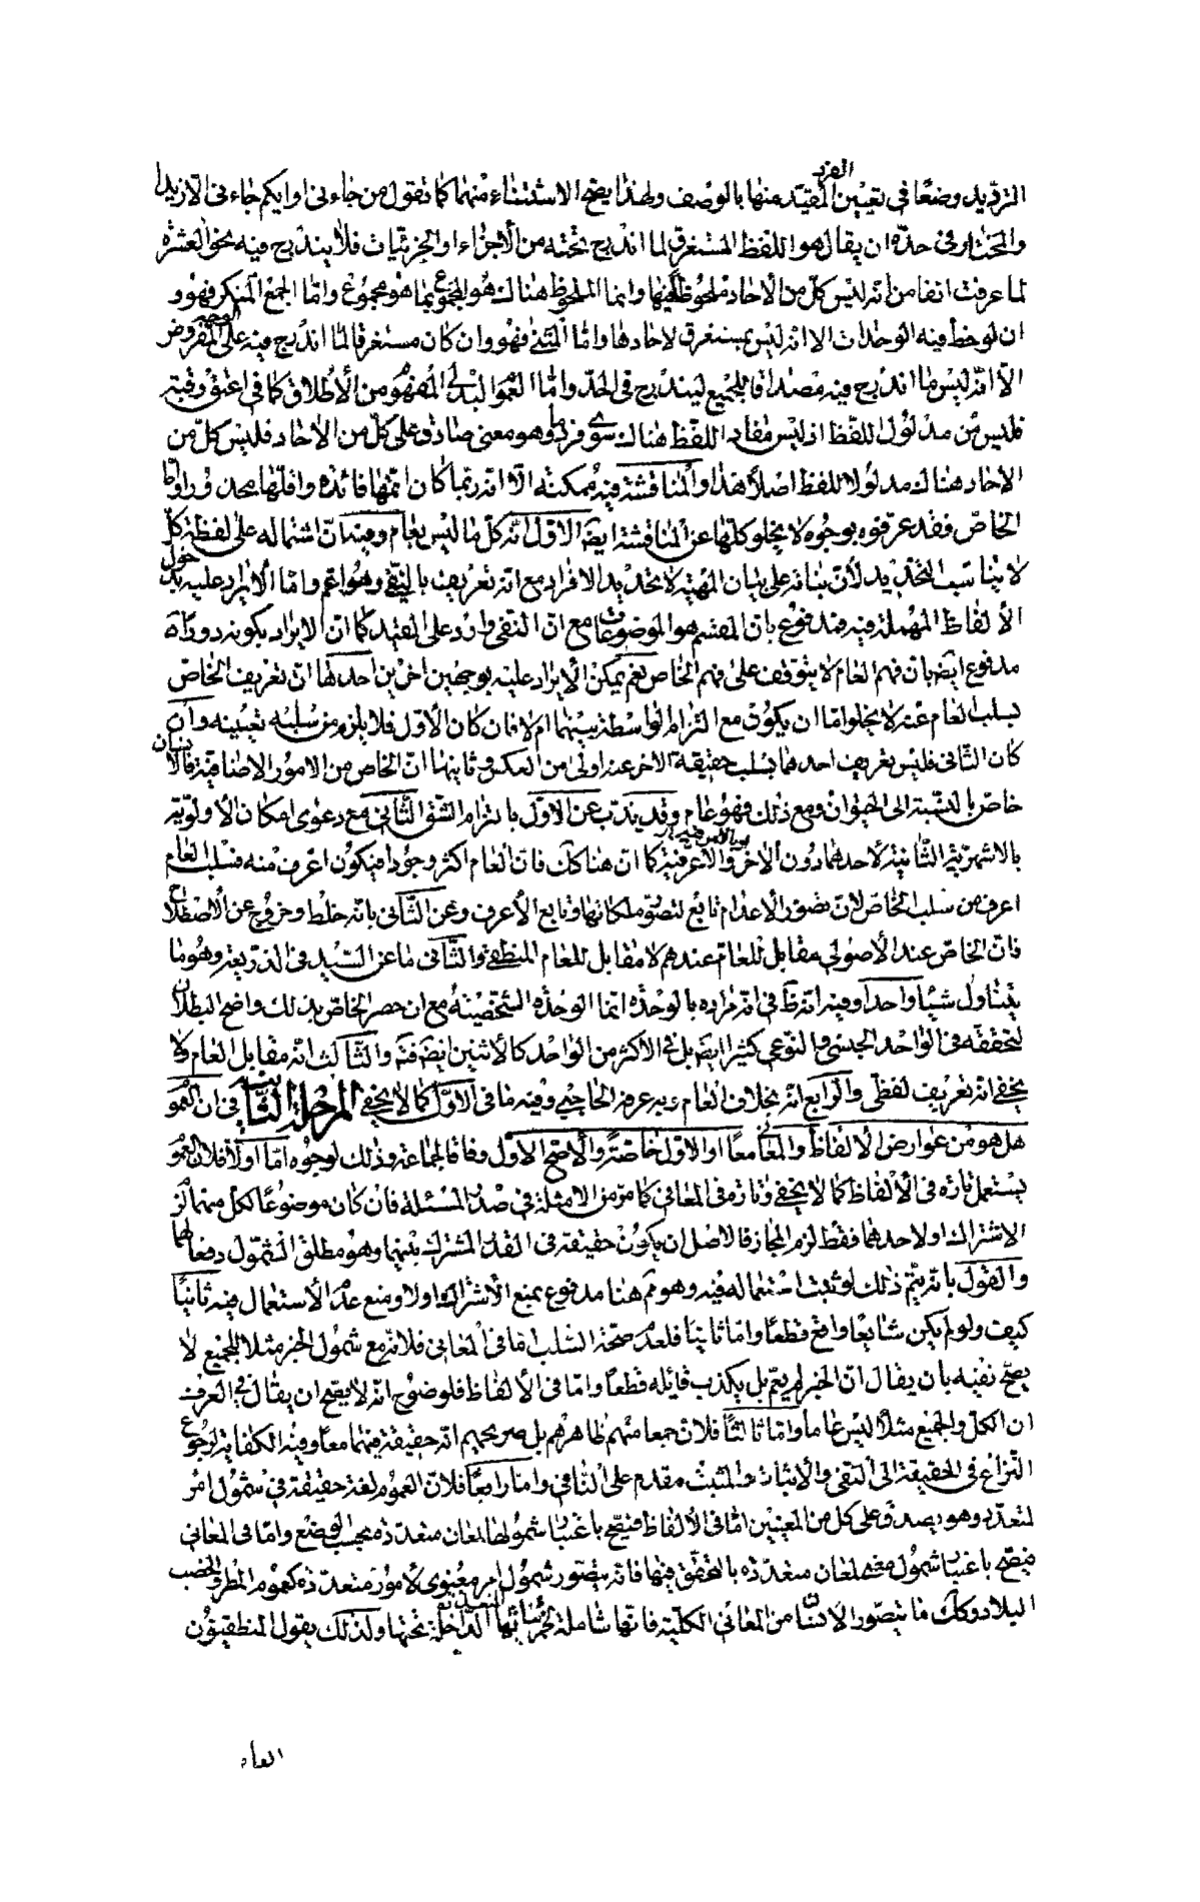 الترديد وضعًا فى تعيين الفرد المقيّد منها بالوصف ولهذا يصحّ الاستثناء منهما كما تقول من جاءنى او ايكم جاءنى الّا زيدا
والمختار فى حدّه ان يقال هو اللفظ المستغرق لما اندرج تحته من الأجزاء او الجزئيّات فلا يندرج فيه نحو العشرة
لما عرفت انفا من انّه ليس كلّ من الأحاد ملحوظا فيها وانما الملحوظ هناك هو المجموع بما هو مجموع وامّا الجمع المنكر فهو و
ان لوحظ فيه الوحدات الا انّه ليس بمستغرق لاحادها وامّا المثنى فهو وان كان مستغرقا لما اندرج فيه على الوجه المفروض
الّا انّه ليس ما اندرج فيه مصداقا للجميع ليندرج فى الحدّ وامّا العموم البدلى المفهوم من الأطلاق كما فى اعتق رقبة
فليس من مدلول اللفظ اذ ليس مفاد اللفظ هناك سوى فرد ما وهو معنى صادق على كلّ من الأحاد فليس كلّ من
الأحاد هناك مدلولا للفظ اصلًا هذا والمناقشة فيه ممكنة الّا انّه ربّما كان اتمّها فائدة واقلّها محذورا وامّا
الخاصّ فقد عرّفوه بوجوه لا يخلو كلّها عن المناقشة ايضا الاوّل انّه كلّ ما ليس بعام وفيه انّ اشتماله على لفظة كلّ
لا يناسب التحديد لأنّ بنائه على بيان المهيّة لا تحديد الافراد مع انّه تعريف بالنّفى وهو اعم وامّا الأيراد عليه بدخول
الألفاظ المهملة فيه فمدفوع بانّ المقسم هو الموضوعات مع انّ النفى وارد على القيد كما انّ الايراد بكونه دوريّا
مدفوع ايضا بانّ فهم العام لا يتوقف على فهم الخاص نعم يمكن الأيراد عليه بوجهين اخرين احدهما انّ تعريف الخاصّ
بسلب العام عنه لا يخلو امّا ان يكون مع التزام الواسطة بينهما ام لا فان كان الأوّل فلا يلزم من سلبه تعيينه وان
كان الثّانى فليس تعريف احدهما بسلب حقيقة الاخر عنه اولى من العكس وثانيهما انّ الخاص من الامور الاضافية فالانسان
خاصّ بالنسبة الى الحيوان ومع ذلك فهو عام وقد يذبّ عن الاوّل بالتزام الشّق الثّانى مع دعوى امكان الأولويّة
بالاشهريّة الثّانية لاحدهما دون الأخر والأعرفيّة كما انّ هنا كك فانّ العام اكثر وجودا فيكون اعرف منه فسلب العام
اعرف من سلب الخاصّ لانّ تصوّر الأعدام تابع لتصوّر ملكاتها وتابع الأعرف اعرف وعن الثّانى بانّه خلط وخروج عن الاصطلاح
فانّ الخاصّ عند الأصولى مقابل للعام عندهم لا مقابل للعام المنطقى والثّانى ما عن السّيد فى الذريعة وهو ما
يتناول شيئًا واحدًا وفيه انّه ظ فى انّه مراده بالوحدة انما الوحدة الشخصيّة مع ان حصر الخاص بذلك واضح البطلان
لتحقّقه فى الواحد الجنسى والنوعى كثيرا ايضا بل فى الأكثر من الواحد كالاثنين ايضا فتم والثّالث انّه مقابل العام ولا
يخفى انّه تعريف لفظىّ والرّابع انّه بخلاف العام وبه عرفه الحاجبى وفيه ما فى الاوّل كما لا يخفى المرحلة الثّانية فى ان العموم
هل هو من عوارض الألفاظ والمعانى معًا او الاوّل خاصّة والأصح الاوّل وفاقا لجماعة وذلك لوجوه امّا اولا فلان العموم
يستعمل تارة فى الألفاظ كما لا يخفى وتارة فى المعانى كما مرّ من الامثلة فى صدر المسئلة فان كان موضوعًا لكل منهما لزم
الاشتراك او لاحدهما فقط لزم المجاز فالاصل ان يكون حقيقة فى القدر المشترك بينهما وهو مطلق الشّمول دفعا لهما
والقول بانّه يتمّ ذلك لو ثبت استعماله فيه وهو مم هنا مدفوع بمنع الأشتراط اولا ومنع عدم الأستعمال فيه ثانيًا
كيف ولو لم يكن شايعًا واقع قطعًا وامّا ثانيًا فلعدم صحّة السّلب امّا فى المعانى فلانّه مع شمول الخبر مثلا للجميع لا
يصحّ نفيه بان يقال انّ الخبر لم يعمّ بل يكذب قائله قطعًا وامّا فى الألفاظ فلوضوح انّه لا يصح ان يقال فى العرف
ان الكلّ والجميع مثلًا ليس عاما وامّا ثالثًا فلانّ جمعا منهم ظاهرهم بل صريحهم انّه حقيقة فيهما معًا وفيه الكفاية لرجوع
النّزاع فى الحقيقة الى النّفى والأثبات والمثبت مقدم على النّافى وامّا رابعًا فلانّ العموم لغة حقيقة فى شمول امر
لمتعدّد وهو يصدق على كل من المعنيين امّا فى الألفاظ فيصحّ باعتبار شمولها لمعان متعدّدة بحسب الوضع وامّا فى المعانى
فيصحّ باعتبار شمول معنى لمعان متعدّدة بالتحقّق فيها فانّه يتصّور شمول امر معنوى لأمور متعدّدة كعموم المطر والخصب
البلاد وكك ما يتصّور الأنسان من المعانى الكليّة فانّها شاملة لجزئيّاتها المتعدّدة الدّاخلة تحتها ولذلك يقول المنطقيّون
العام